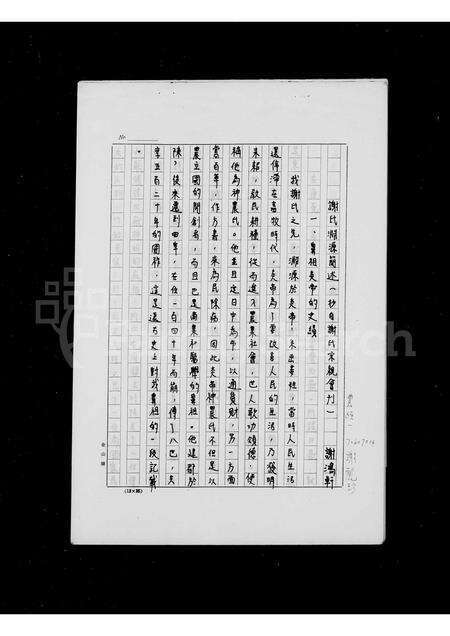 謝氏溯源簡述(抄自謝氏宗親會刊) 謝鴻軒
一、鼻祖炎帝的史蹟
我謝氏之先,溯源於炎帝,本出姜姓,當時人民生活
還停滯在畜牧時代,炎帝為了要改善人民的生活,乃發明
耒耜,教民耕種,從而進入農業社會,世人歌功頌德,便
稱他為神農氏。他並且定日中為市,以通貨財,另一方面
嘗百草,作方書,來為民除病,因此炎帝神農氏不但是以
農立國的開創者,而且也是商業和醫學的鼻祖。他建都於
陳,後來遷到曲阜,在位一百四十年而崩,傳了八世,共
享五百二十年的國祚,這是遠古史上對我鼻祖的一段記載
。
No.
(12×25)